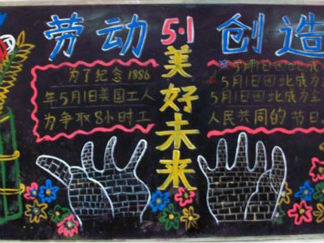 劳动
51
创造
美好未来
为了纪念1886
年5月1日美国工人
力争取8小时工
5月1日由此成为
人民共同的节日